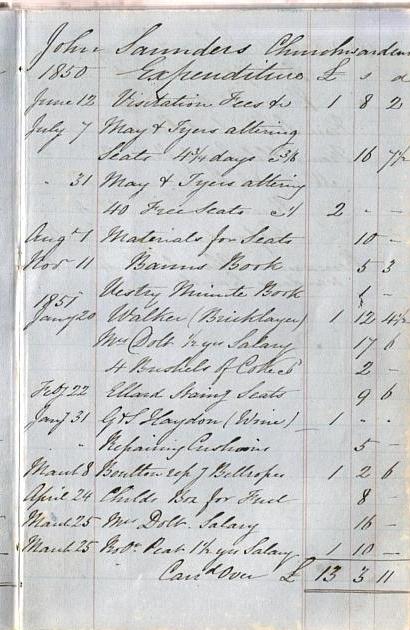 John Saunders Churchwarden
1850 Expenditure £ s d
June 12 Visitation Fees &c 1 8 2
July 7 May & Tyers altering
Seats 4¼ days 3/6 16 7½
" 31 May & Tyers altering
40 Free Seats 1/ 2 - -
Augt 1 Materials for Seats 10 -
Nov 11 Banns Book 5 3
Vestry Minute Book 1 -
1851
Jany 20 Walker (Bricklayer) 1 12 4½
Mrs Dolt ½ yrs Salary 17 6
4 Bushels of Coke 2 -
Feby 22 Ellard Seats 9 6
Jany 31 G & S Haydon (Wine) 1 - -
" Repairing Cushions 5 -
March 8 Boulton rep g Bellropes 1 2 6
April 24 Childs Box for Fuel 8 -
March 25 Mrs Dolt Salary 16 -
March 25 Robt Peat 1½ yrs Salary 1 10 -
Carrd Over £ 13 3 11